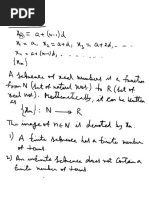 = a+(n-1)d
x₁ = a, x₂ = a+d, x₃ = a+2d, - - -
xₙ = a+(n-1)d, - - - -
{xₙ}
A sequence of real numbers is a function
from N (set of natural nos) to R (set of
real nos). Mathematically, it can be written
as {xₙ} : N ⟶ R
The image of n∈N is denoted by xₙ.
1) A finite sequence has a finite number
of terms.
2) An infinite sequence does not contain a
finite number of terms.